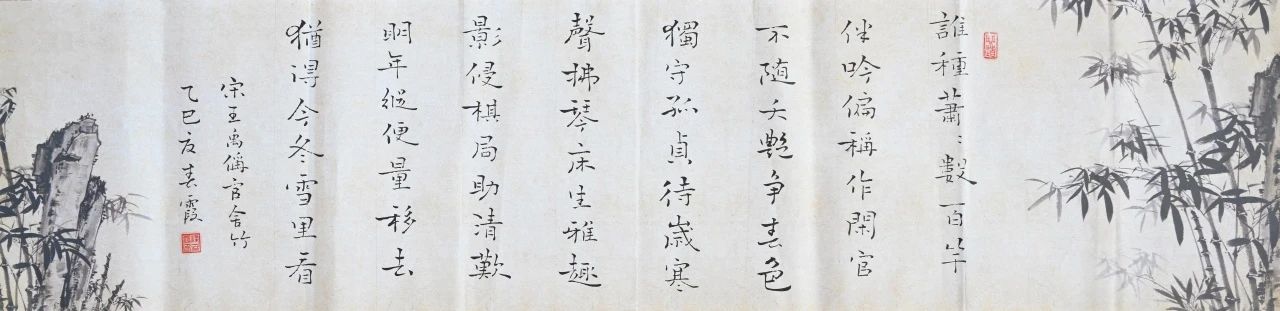 誰種蕭〻數百竿
伴吟偏稱作閑官
不隨夭艷争春色
獨守孤貞待歲寒
聲拂琴床生雅趣
影侵棋局助清歡
明年縱便量移去
猶得今冬雪里看
宋王禹偁官舍竹
乙巳春霞